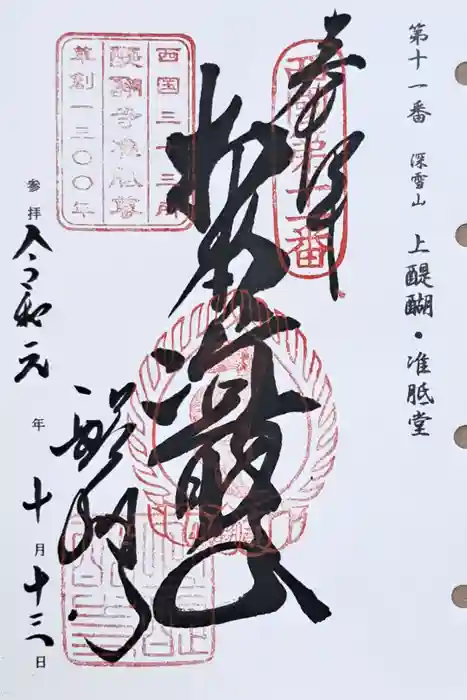 第十一番 深雪山 上醍醐・准胝堂
奉拝
西国第十一番
西国三十三所
醍醐寺准胝尊
草創一三〇〇年
醍醐寺
参拝 令和元年十月十三日